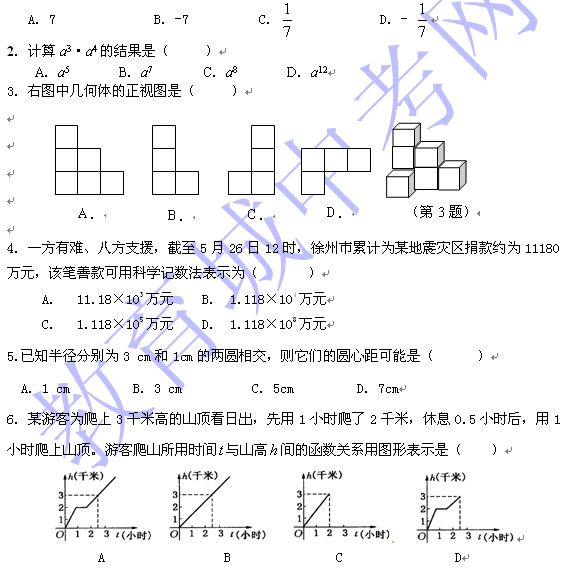 A. 7 B. -7 C. 1/7 D. - 1/7
2. 计算a³·a⁴的结果是（ ）
A. a⁵ B. a⁷ C. a⁸ D. a¹²
3. 右图中几何体的正视图是（ ）
A. B. C. D. （第3题）
4. 一方有难、八方支援，截至5月26日12时，徐州市累计为某地震灾区捐款约为11180
万元，该笔善款可用科学记数法表示为（ ）
A. 11.18×10³万元 B. 1.118×10⁴万元
C. 1.118×10⁵万元 D. 1.118×10⁸万元
5.已知半径分别为3 cm和1cm的两圆相交，则它们的圆心距可能是（ ）
A. 1 cm B. 3 cm C. 5cm D. 7cm
6. 某游客为爬上3千米高的山顶看日出，先用1小时爬了2千米，休息0.5小时后，用1
小时爬上山顶。游客爬山所用时间t与山高h间的函数关系用图形表示是（ ）
h(千米) h(千米) h(千米) h(千米)
3 3 3 3
2 2 2 2
1 1 1 1
O 1 2 3 t(小时) O 1 2 3 t(小时) O 1 2 3 t(小时) O 1 2 3 t(小时)
A B C D
教育城中考网